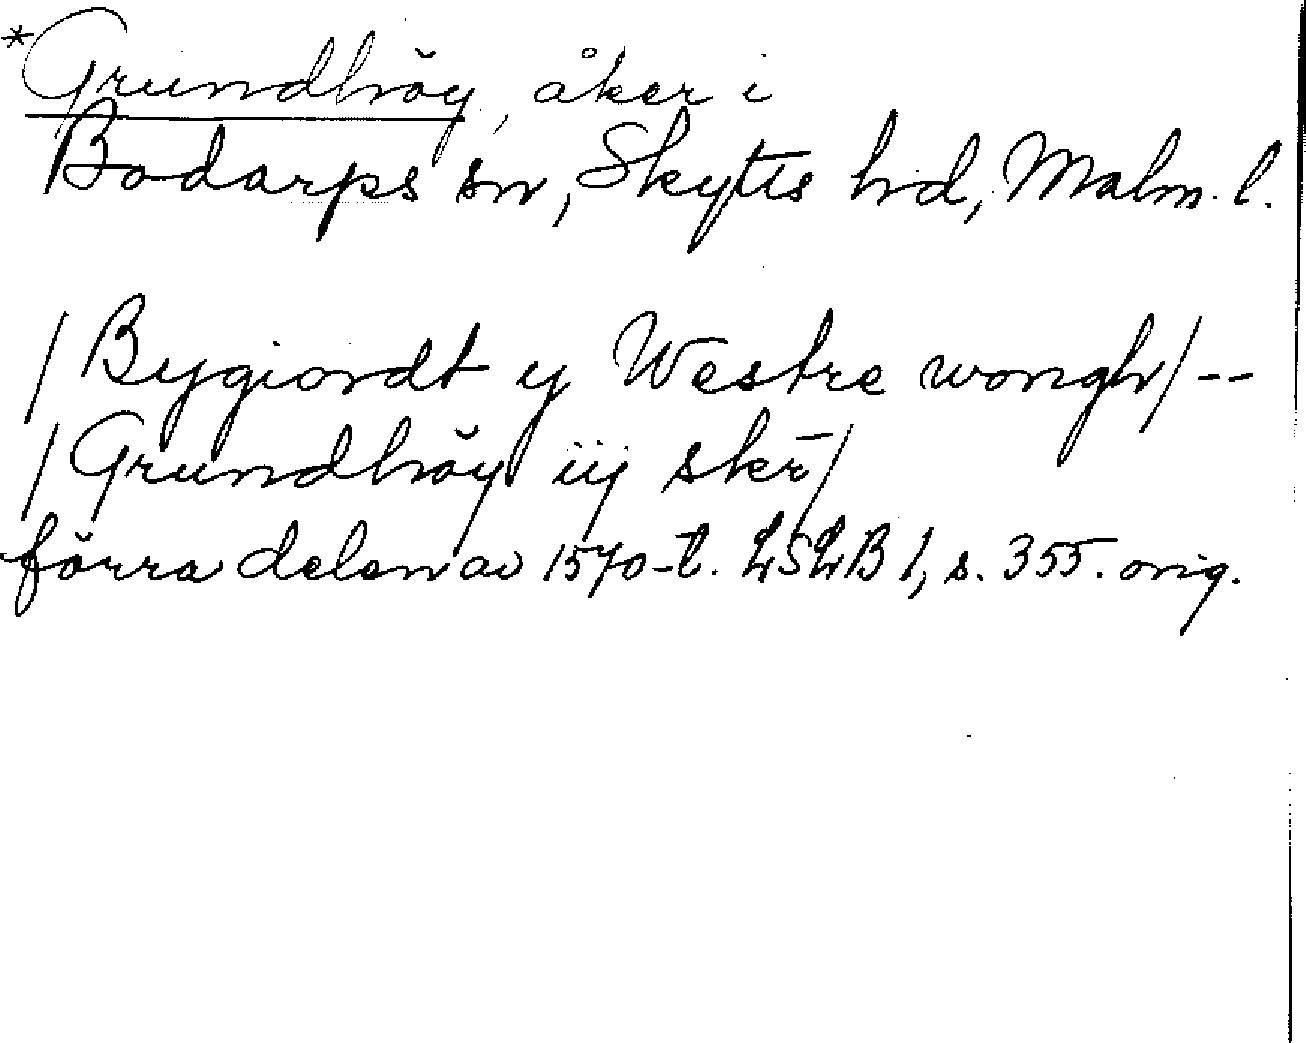 *Grundhöy, åker i
Bodarps sn, Skytts hd, Malm. l.
/Bygiordt y Westre wongh/--
/Grundhöy iij skr̄/
förra delen av 1570-t. LSLB 1, s. 355. orig.